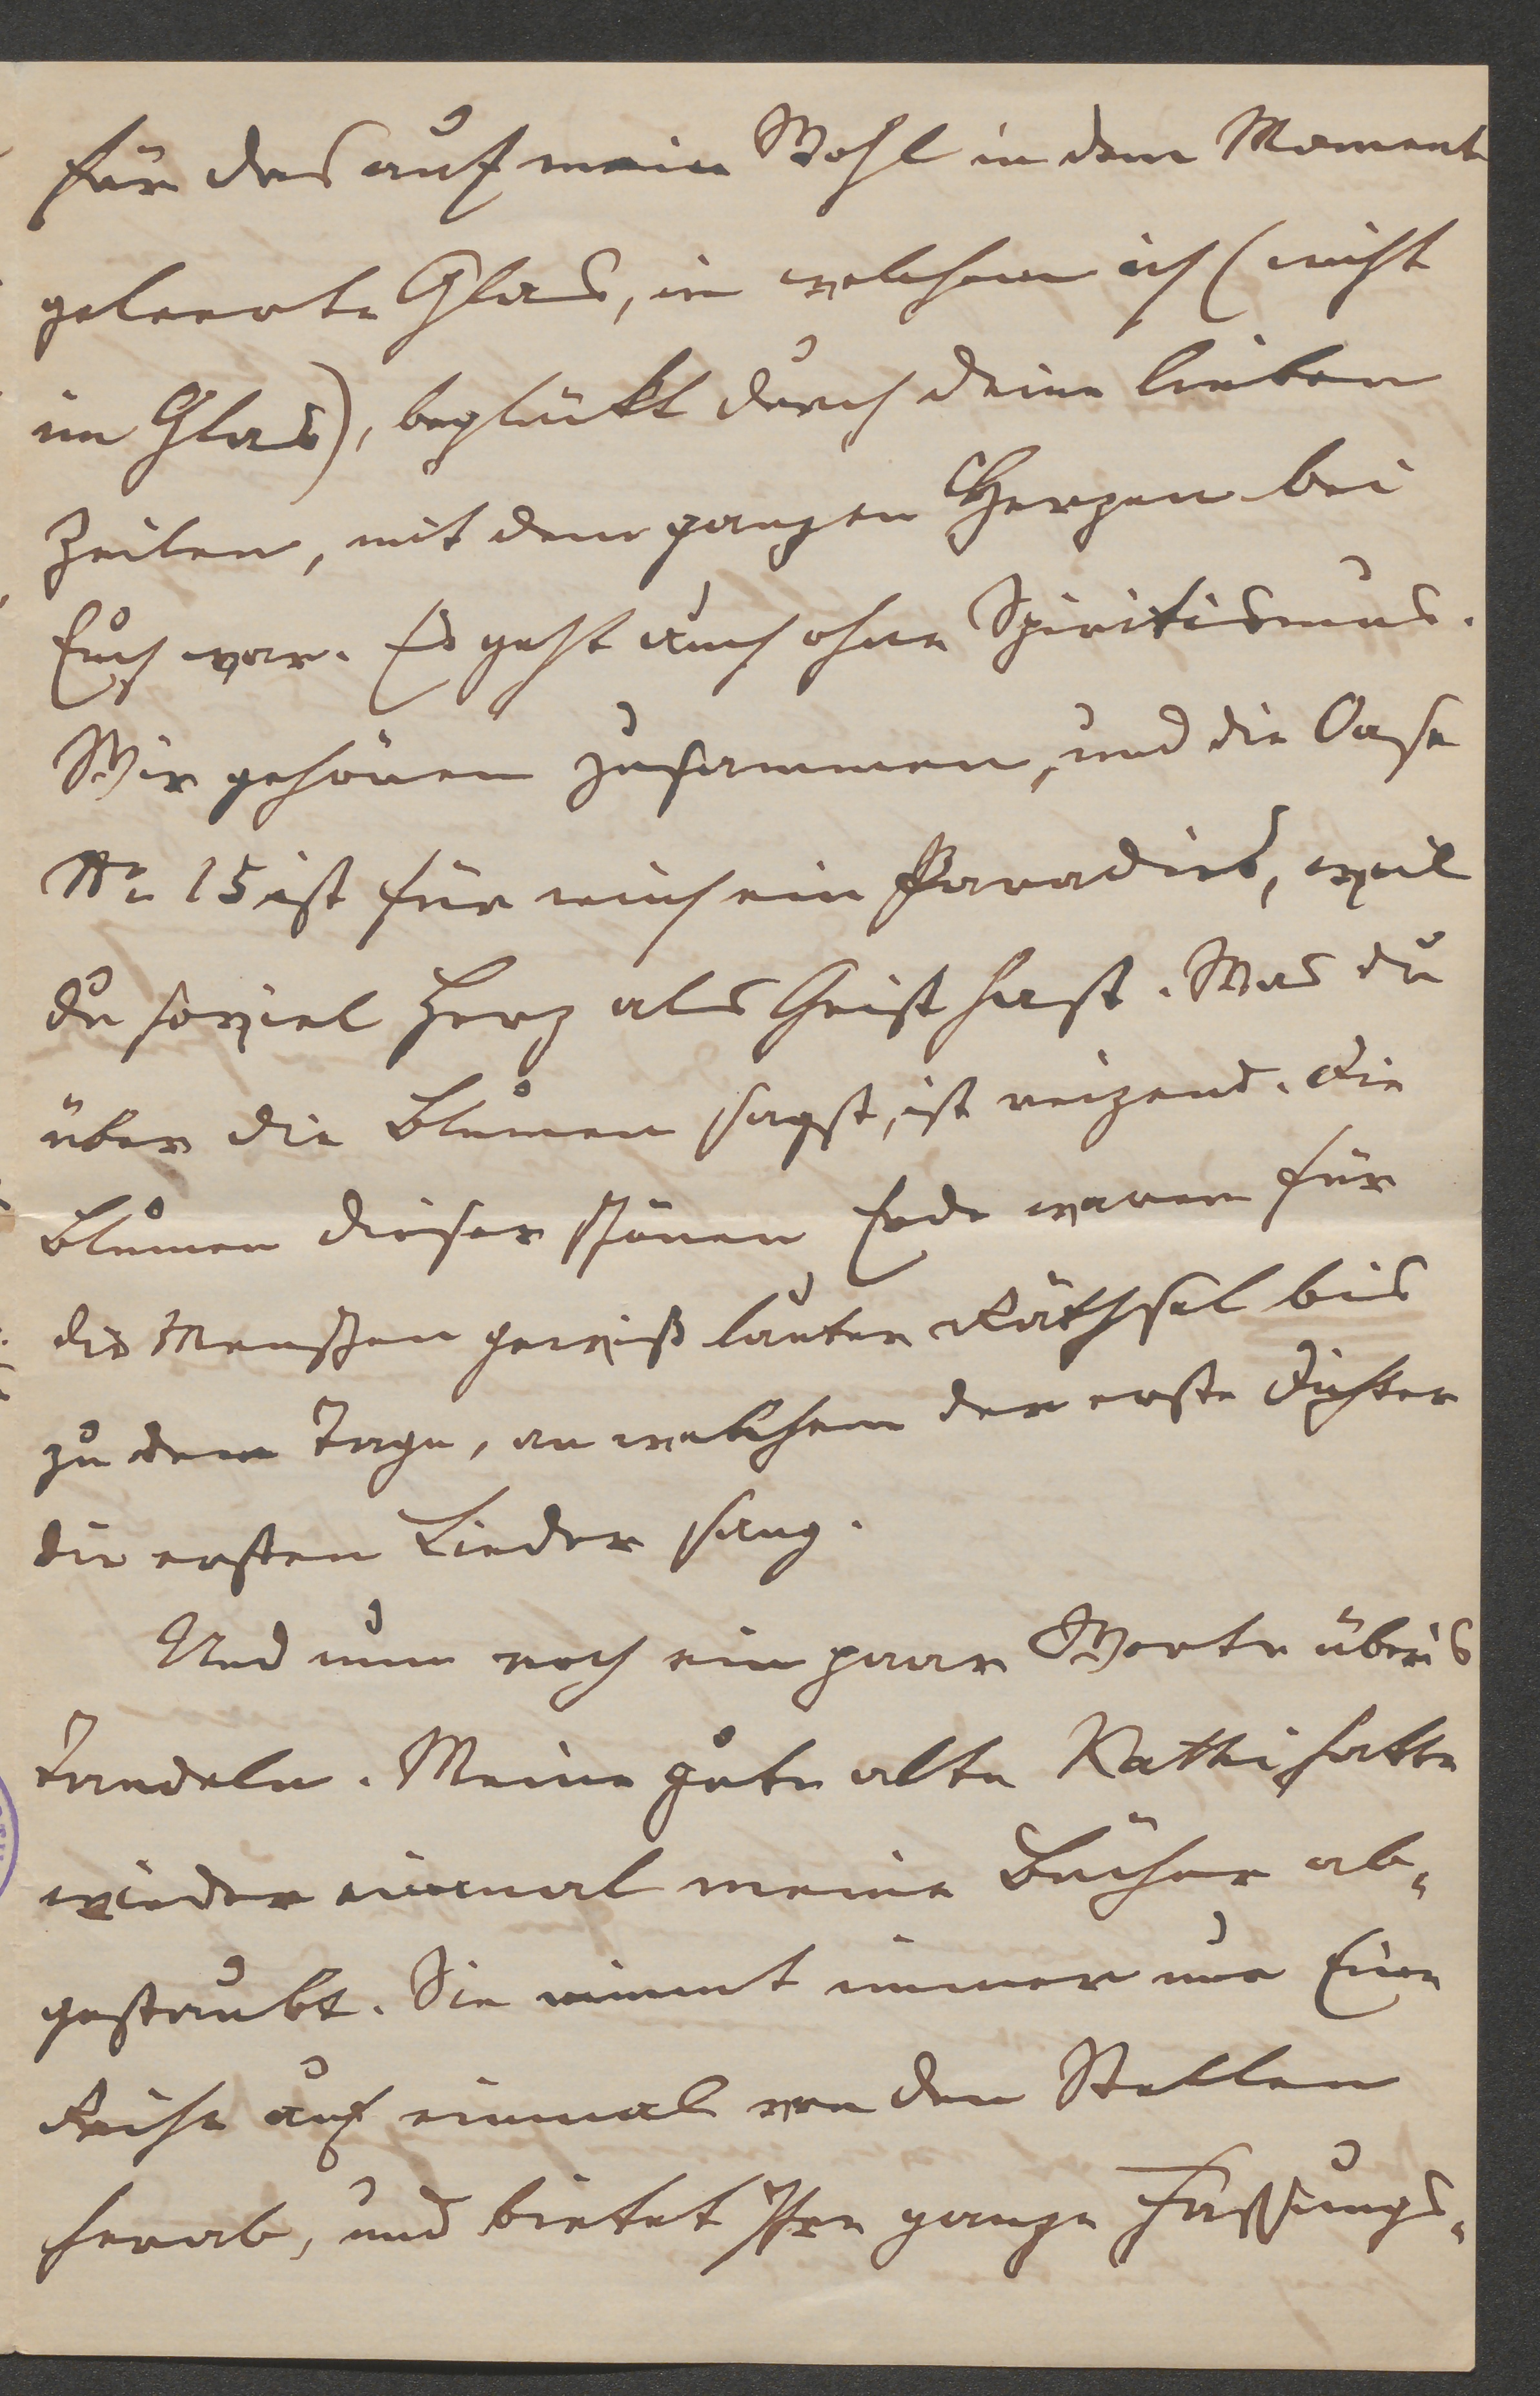 für das auf mein Wohl in dem Moment
geleerte Glas, in welchem ich (nicht
im Glas), beglükt durch deine lieben
Zeilen, mit dem ganzen Herzen bei
Euch war. Es geht auch ohne Spiritismus.
Wir gehören zusammen, und die Oase
Nr 15 ist für mich ein Paradies, weil
du soviel Herz als Geist hast. Was du
über die Blumen sagst, ist reizend. Die
Blumen dieser schönen Erde waren für
die Menschen gewiß lauter Räthsel bis
zu dem Tage, an welchem der erste Dichter
die ersten Lieder sang.
Und nun noch ein paar Worte über's
Tandeln. Meine gute alte Kathi hatte
wieder einmal meine Bücher ab-
gestaubt. Sie nimmt immer nur Eine
Reihe auf einmal von den Stellen
herab, und bietet Ihre ganze Fassungs-